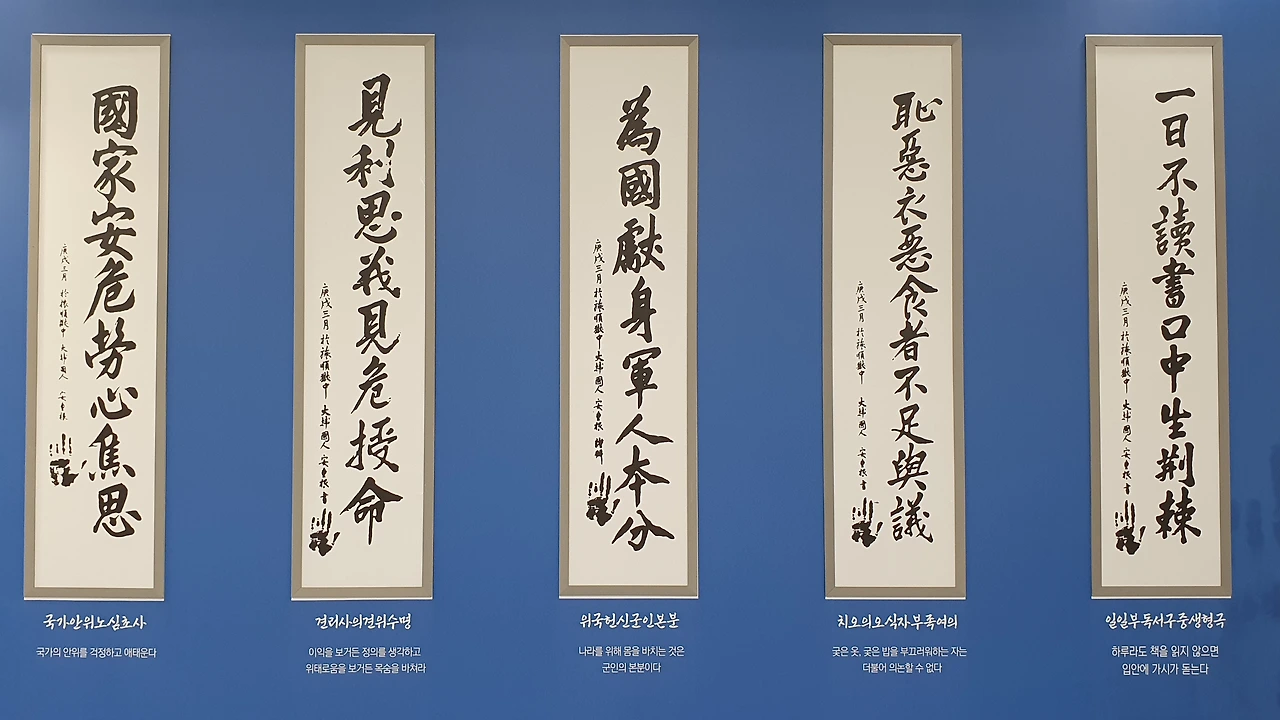 國家安危勞心焦思
庚戌三月 於旅順獄中 大韓國人 安重根
국가안위노심초사
국가의 안위를 걱정하고 애태운다
見利思義見危授命
庚戌三月 於旅順獄中 大韓國人 安重根 書
견리사의견위수명
이익을 보거든 정의를 생각하고
위태로움을 보거든 목숨을 바쳐라
為國獻身軍人本分
庚戌三月 於旅順獄中 大韓國人 安重根 謹拜
위국헌신군인본분
나라를 위해 몸을 바치는 것은
군인의 본분이다
恥惡衣惡食者不足與議
庚戌三月 於旅順獄中 大韓國人 安重根 書
치오의오식자부족여의
궂은 옷, 궂은 밥을 부끄러워하는 자는
더불어 의논할 수 없다
一日不讀書口中生荊棘
庚戌三月 於旅順獄中 大韓國人 安重根 書
일일부독서구중생형극
하루라도 책을 읽지 않으면
입안에 가시가 돋는다